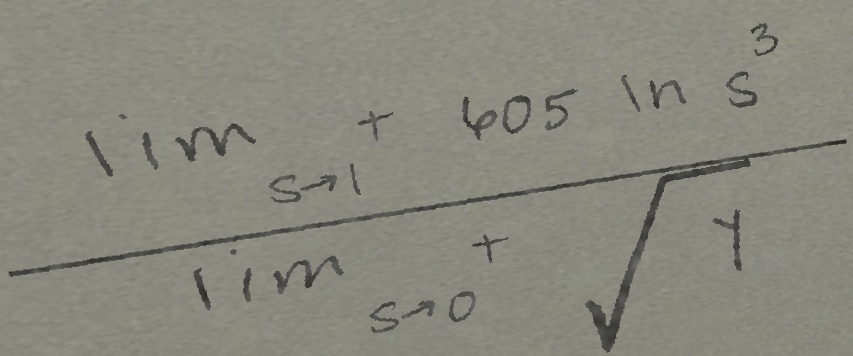 lim s→1 + 605 ln s^3
lim s→0 + √y